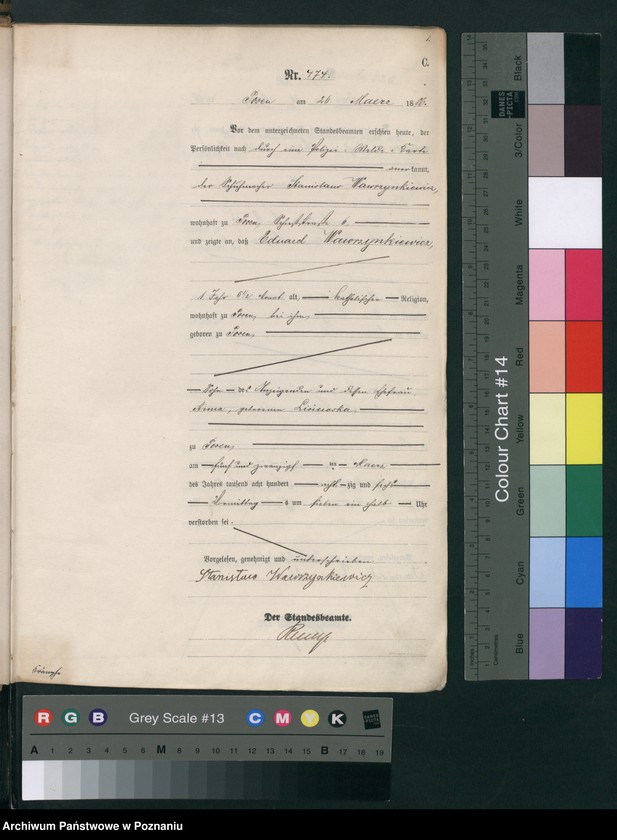 C.
Nr. 474.
Posen am 26 Maerz 188
Vor dem unterzeichneten Standesbeamten erschien heute, der
Persönlichkeit nach durch eine Polizei-Melde-Karte
kannt,
der Schuhmacher Stanislaus Wawrzynkiewicz,
wohnhaft zu Posen
und zeigte an, daß Eduard Wawrzynkiewicz,
1 Jahr Monat alt, katholischer Religion,
wohnhaft zu Posen, bei ihm
geboren zu Posen,
Sohn des Anzeigenden und dessen Ehefrau
Anna, geborenen
zu Posen,
am fünf und zwanzigsten Maerz
des Jahres tausend acht hundert acht zig und sechs
Vormittags um sieben ein halb Uhr
verstorben sei.
Vorgelesen, genehmigt und unterschrieben
Stanisław Wawrzynkiewicz
Der Standesbeamte.
Colour Chart #14
Blue Cyan Green Yellow Red Magenta White 3/Color Black
DANES PICTA
Inches
Centimetres
R G B Grey Scale #13 C M Y K
A 1 2 3 4 5 6 M 8 9 10 11 12 13 14 15 B 17 18 19
Archiwum Państwowe w Poznaniu